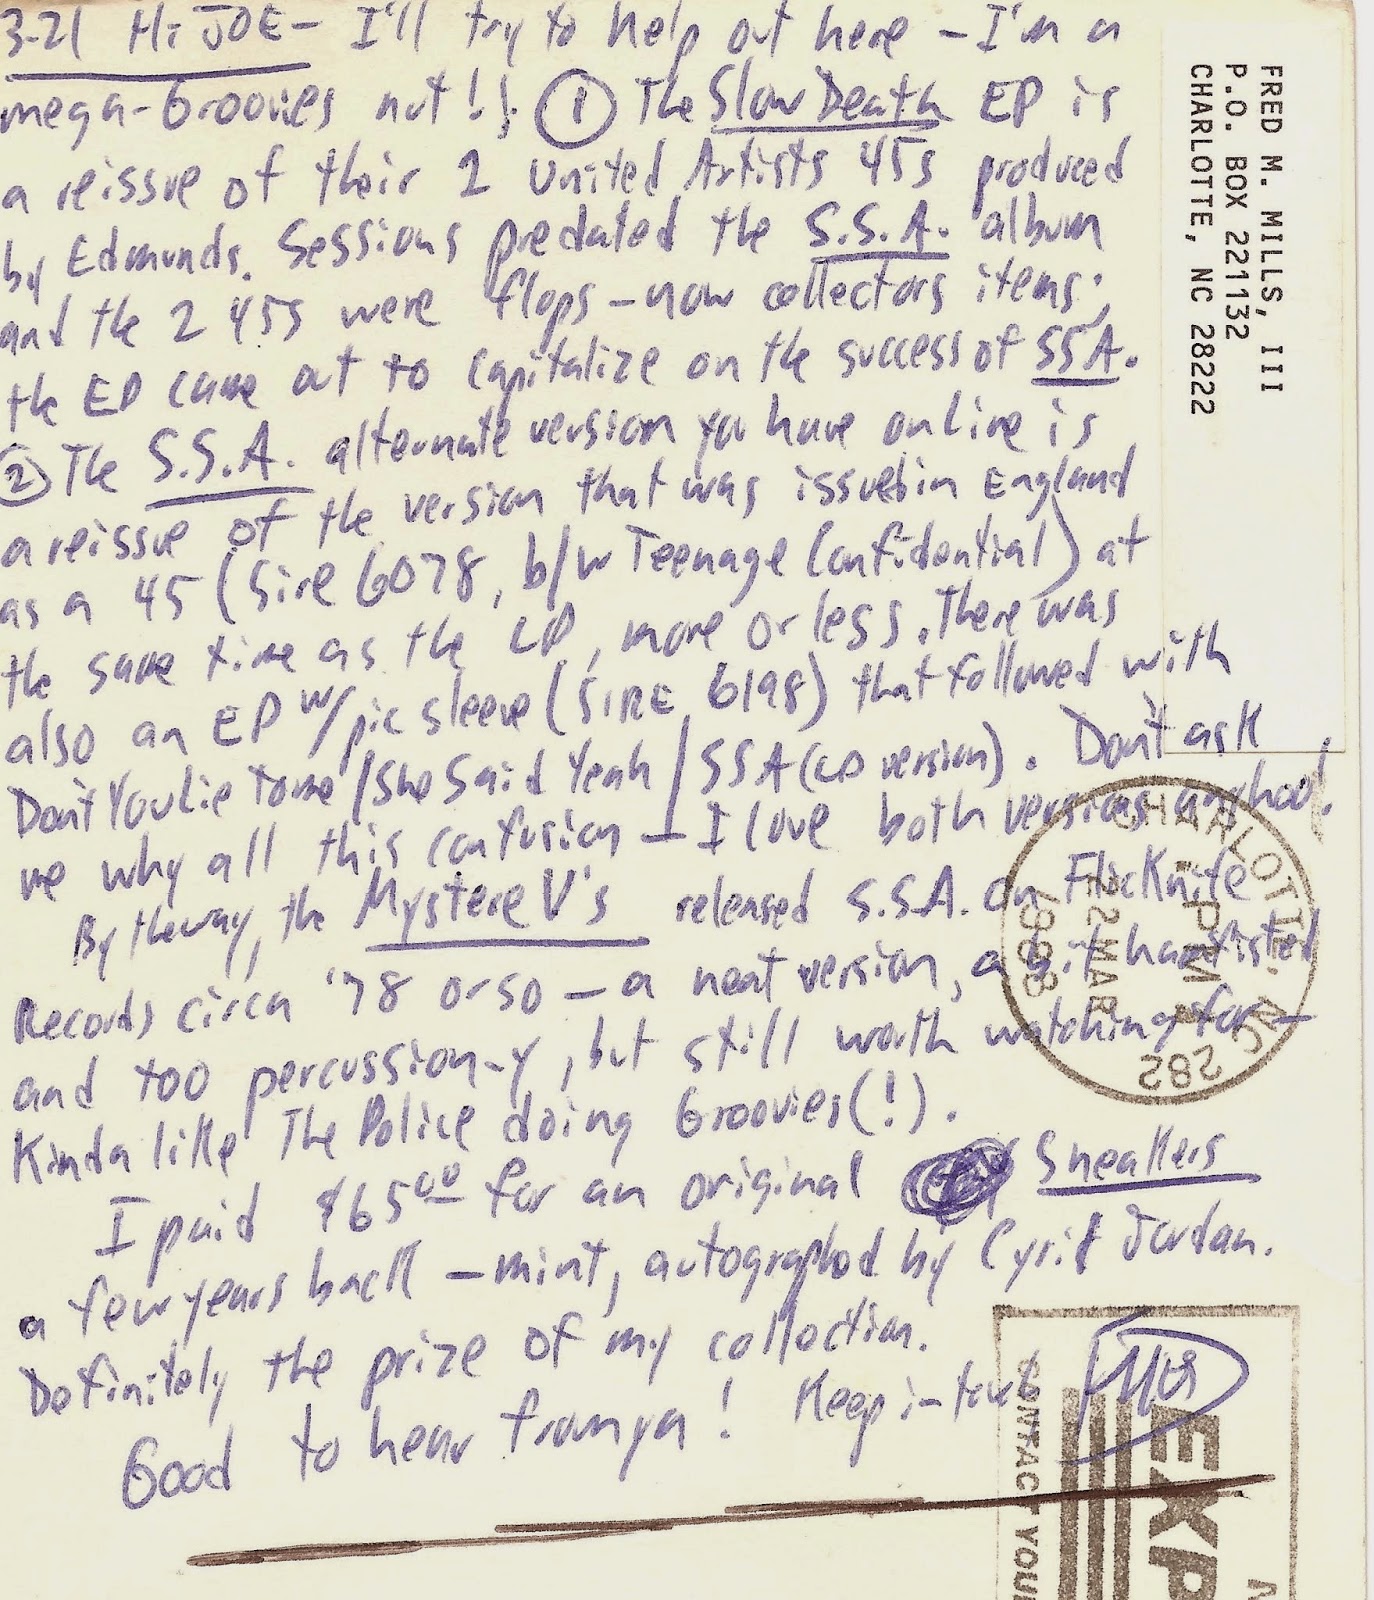 3-21 Hi JOE- I'll try to help out here - I'm a
mega-Groovies nut!! ① The Slow Death EP is
a reissue of their 2 United Artists 45s produced
by Edmunds. Sessions predated the S.S.A. album
and the 2 45s were flops - now collectors items;
the EP came out to capitalize on the success of SSA.
② The S.S.A. alternate version you have on line is
a reissue of the version that was issued in England
as a 45 (Sire 6078, b/w Teenage Confidential) at
the same time as the LP, more or less. There was
also an EP w/pic sleeve (SIRE 6198) that followed with
Don't You Lie To me/She Said Yeah/SSA (LP version). Don't ask
me why all this confusion - I love both versions anyhoo.
By the way, the Mystere V's released S.S.A. on FlicKnife
Records circa '78 or so - a neat version, a bit hamfisted
and too percussion-y, but still worth watching for -
Kinda like The Police doing Groovies(!).
I paid $65.00 for an original Sneakers
a few years back - mint, autographed by Cyril Jordan.
Definitely the prize of my collection.
Good to hear from ya! Keep i-touch
FRED M. MILLS, III
P.O. BOX 221132
CHARLOTTE, NC 28222
CHARLOTTE, NC 282
PM
22 MAR
1988
EXP
CONTACT YOU